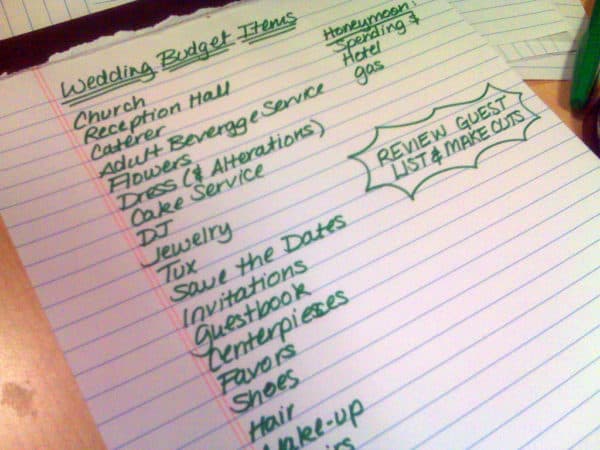 Wedding Budget Items
Church
Reception Hall
Caterer
Adult Beverage Service
Flowers
Dress (& Alterations)
Cake Service
DJ
Jewelry
Tux
Save the Dates
Invitations
Guestbook
Centerpieces
Favors
Shoes
Hair
Make-up
Honeymoon:
Spending $
Hotel
gas
REVIEW GUEST
LIST & MAKE CUTS